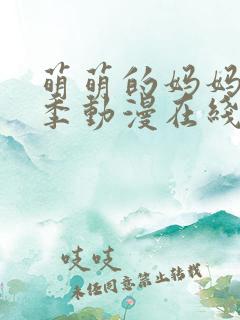 萌萌的妈妈
季動漫在綫
吱吱
未经同意禁止转载